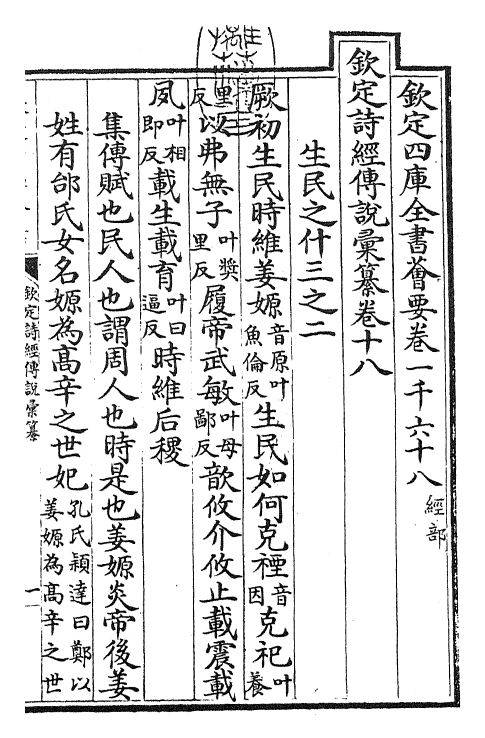 欽定四庫全書薈要卷一千六十八 經部
欽定詩經傳說彙纂卷十八
生民之什三之二
厥初生民時維姜嫄音原叶魚倫反生民如何克禋音因克祀叶養
里反以弗無子叶獎里反履帝武敏叶母鄙反歆攸介攸止載震載
夙叶相即反載生載育叶曰逼反時維后稷
集傳賦也民人也謂周人也時是也姜嫄炎帝後姜
姓有邰氏女名嫄為高辛之世妃孔氏穎達曰鄭以姜嫄為高辛之世
欽定詩經傳說彙纂
一